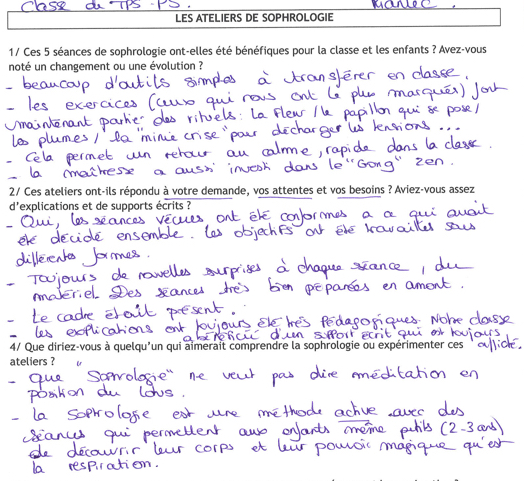 Classe de TPS-PS.
LES ATELIERS DE SOPHROLOGIE
1/ Ces 5 séances de sophrologie ont-elles été bénéfiques pour la classe et les enfants ? Avez-vous
noté un changement ou une évolution ?
- beaucoup d'outils simples à transférer en classe.
- les exercices (ceux qui nous ont le plus marqués) font
maintenant partie des rituels : la fleur / le papillon qui se pose /
les plumes / la "minie crise" pour décharger les tensions ...
- Cela permet un retour au calme, rapide dans la classe.
- la maîtresse a aussi investi dans le "Gong" zen.
2/ Ces ateliers ont-ils répondu à votre demande, vos attentes et vos besoins ? Aviez-vous assez
d'explications et de supports écrits ?
- Oui, les séances vécues ont été conformes a ce qui avait
été décidé ensemble. les objectifs ont été travaillés sous
différentes formes.
- Toujours de nouvelles surprises à chaque séance, du
matériel. Des séances très bien préparées en amont.
- Le cadre était présent.
- les explications ont toujours été très pédagogiques. Notre classe
a bénéficié d'un support écrit qui est toujours
affiché.
4/ Que diriez-vous à quelqu'un qui aimerait comprendre la sophrologie ou expérimenter ces
ateliers ?
- que "Sophrologie" ne veut pas dire méditation en
position du Lotus.
- la Sophrologie est une méthode active avec des
séances qui permettent aux enfants même petits (2-3 ans)
de découvrir leur corps et leur pouvoir magique qu'est
la respiration.